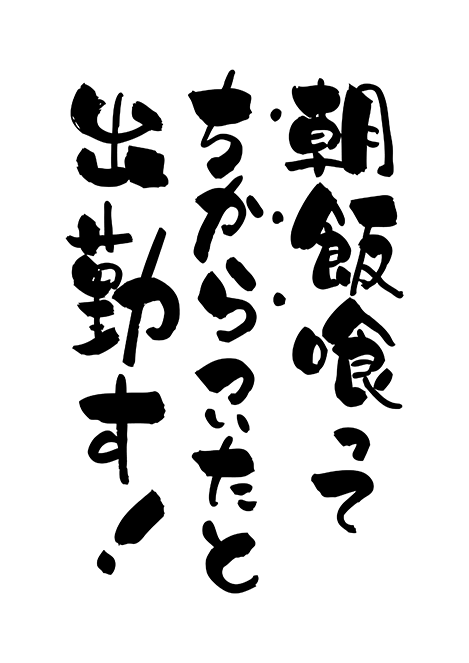 朝飯喰って
ちからついたと
出勤す!